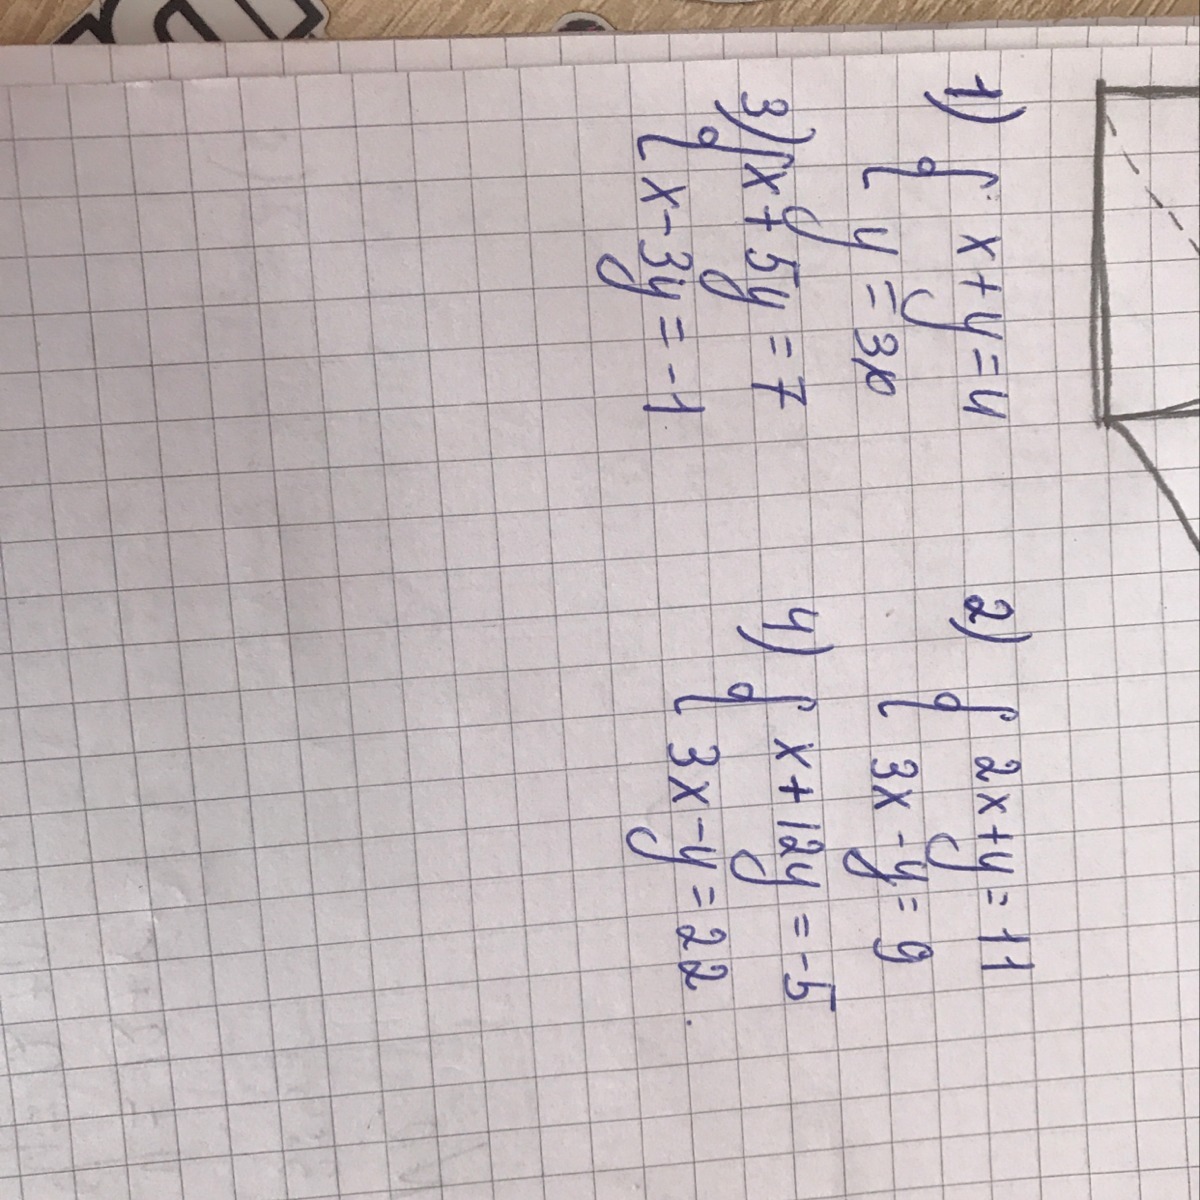 1) { x + y = 4
y = 3x
2) { 2x + y = 11
3x - y = 9
3) { x + 5y = 7
x - 3y = -1
4) { x + 12y = -5
3x - y = 22.